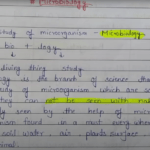 Microbiology
study of microorganism - Microbiology
bio + logy
↓ ↓
living thing study
is the branch of science that
study of microorganism which are so
they can not be seen with nak
seen by the help of micro
found in a most every wher
soil water air plants surface